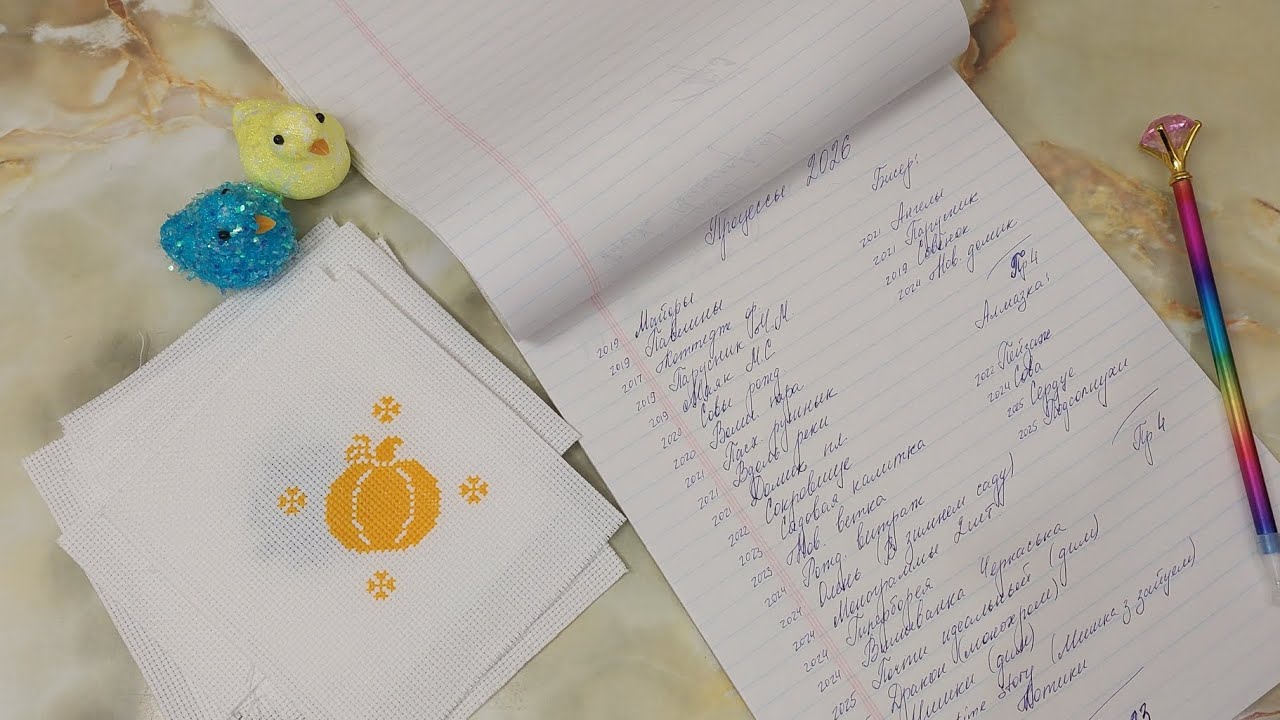 Процессы 2026
2019 Майоры
2019 Павлины
2017 Коттедж
2019 Парусник РЧМ
2019 Маяк М.С
2020 Совы рожд.
2020 Волш. пара
2021 Пасх. рушнык
2021 Вдоль реки
2021 Домик пл.
2022 Сокровище
2023 Садовая калитка
2023 Нов. ветка
2024 Рожд. витраж
2024 Олень (В зимнем саду)
2024 Монограммы 2шт
2024 Гиперборея
2025 Вышиванка Черкаська
Почти идеальный (дим)
Дракон (монохром)
Мишки (дим)
time story (Мишка з зайцем)
Котики
23
Бисер:
2021 Ангелы
2021 Парусник
2019 Совенок
2024 Нов. домик
Пр 4
Алмазка:
2022 Пейзаж
2024 Сова
2025 Сердце
2025 Подсолнухи
Пр 4